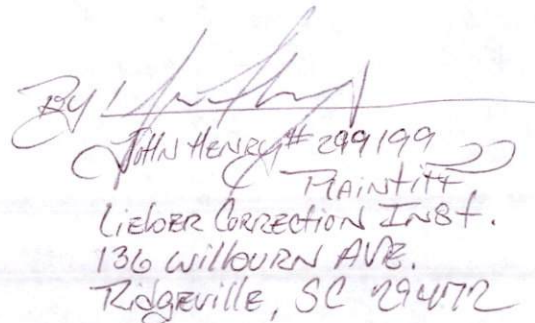 By
John Henry # 299199
Plaintiff
Lieber Correction Inst.
136 Wilbourn Ave.
Ridgeville, SC 29472